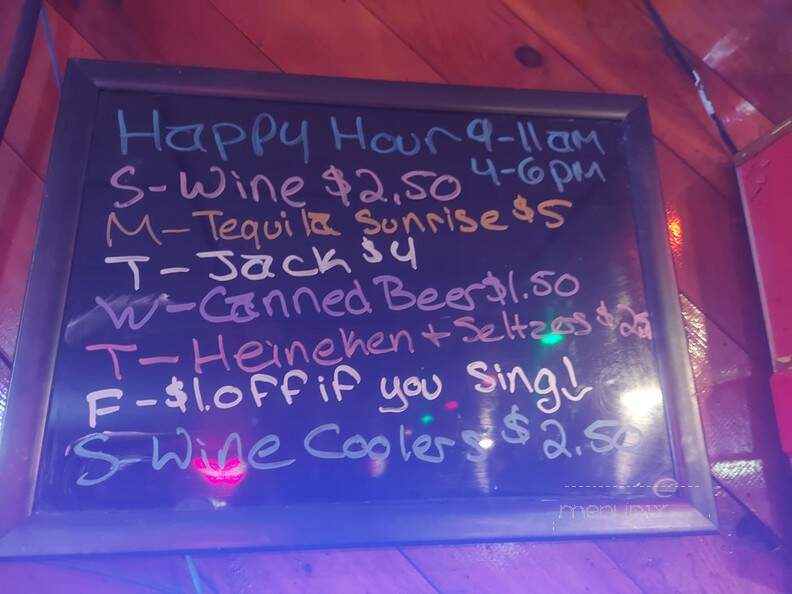 Happy Hour 9-11am
4-6pm
S-Wine $2.50
M-Tequila Sunrise $5
T-Jack $4
W-Canned Beer $1.50
T-Heineken + Seltzos $2
F-$1.off if you Sing!
S-Wine Coolers $2.50
menupix